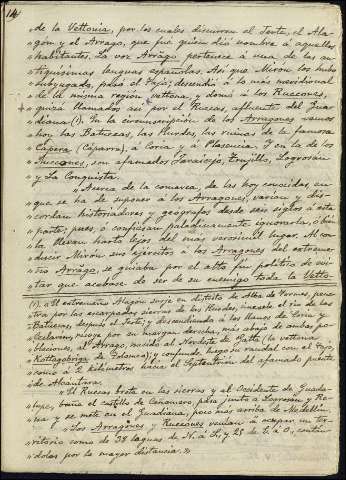 14
„ de la Vettonia, por los cuales discurren el Jerte, el Ala-
„ gon y el Arrago, que fué quien dio nombre á aquellos
„ habitantes. La voz Arrago pertenece á una de las an-
„ tiquísimas lenguas españolas. Así que Miron los hubo
„ subyugado, pasó el Tajo; descendió á lo más meridional
„ de la misma region vettona, y domó á los Ruccones,
„ quizá llamados así por el Ruecas, afluente del Gua-
„ diana (1). En la circunscripcion de los Arragones vemos
„ hoy las Batuecas, las Hurdes, las ruinas de la famosa
„ Cápera (Cáparra), á Coria y á Plasencia. Y en la de los
„ Ruccones, son afamados Jaraicejo, Trujillo, Logrosan
„ y La Conquista.
„ Acerca de la comarca, de las hoy conocidas, en
„ que se ha de suponer á los Arragones, varian y dis-
„ cordan historiadores y geógrafos desde seis siglos á esta
„ parte; pues, ó confiesan paladinamente ignorarla, ó bien
„ la llevan harto lejos del mas verosimil lugar. Al con-
„ ducir Miron sus ejércitos á los Arragones del extreme-
„ ño Arrago, se guiaba por el alto fin político de evi-
„ tar que acabase de ser de su enemigo toda la Vetto-
(1). „ El extremeño Alagon surje en distrito de Alba de Tormes, pene-
„ tra por las escarpadas sierras de las Hurdes, linealo el rio de las
„ Batuecas, despues el Jerte; y descendiendo a los llanos de Coria y
„ Ceclavin, recoge por su margen derecha, mas abajo de ambas po-
„ blaciones, al Arrago, nacido al Nordeste de Gata (la vettona
„ Kottaeobriga de Tolomeo); y confunde luego su caudal con el Tajo,
„ como á 2 kilómetros hacia el Septentrion del afamado puente
„ de Alcántara.
„ El Ruecas brota en las sierras y al Occidente de Guada-
„ lupe, baña el castillo de Cañamero, pasa junto a Logrosan y Re-
„ na y se mete en el Guadiana, poco mas arriba de Medellin.
„ Los Arragones y Ruccones venian á ocupar un ter-
„ ritorio como de 38 leguas de N. á S., y 25 de E. á O., contán
„ dolas por la mayor distancia. »